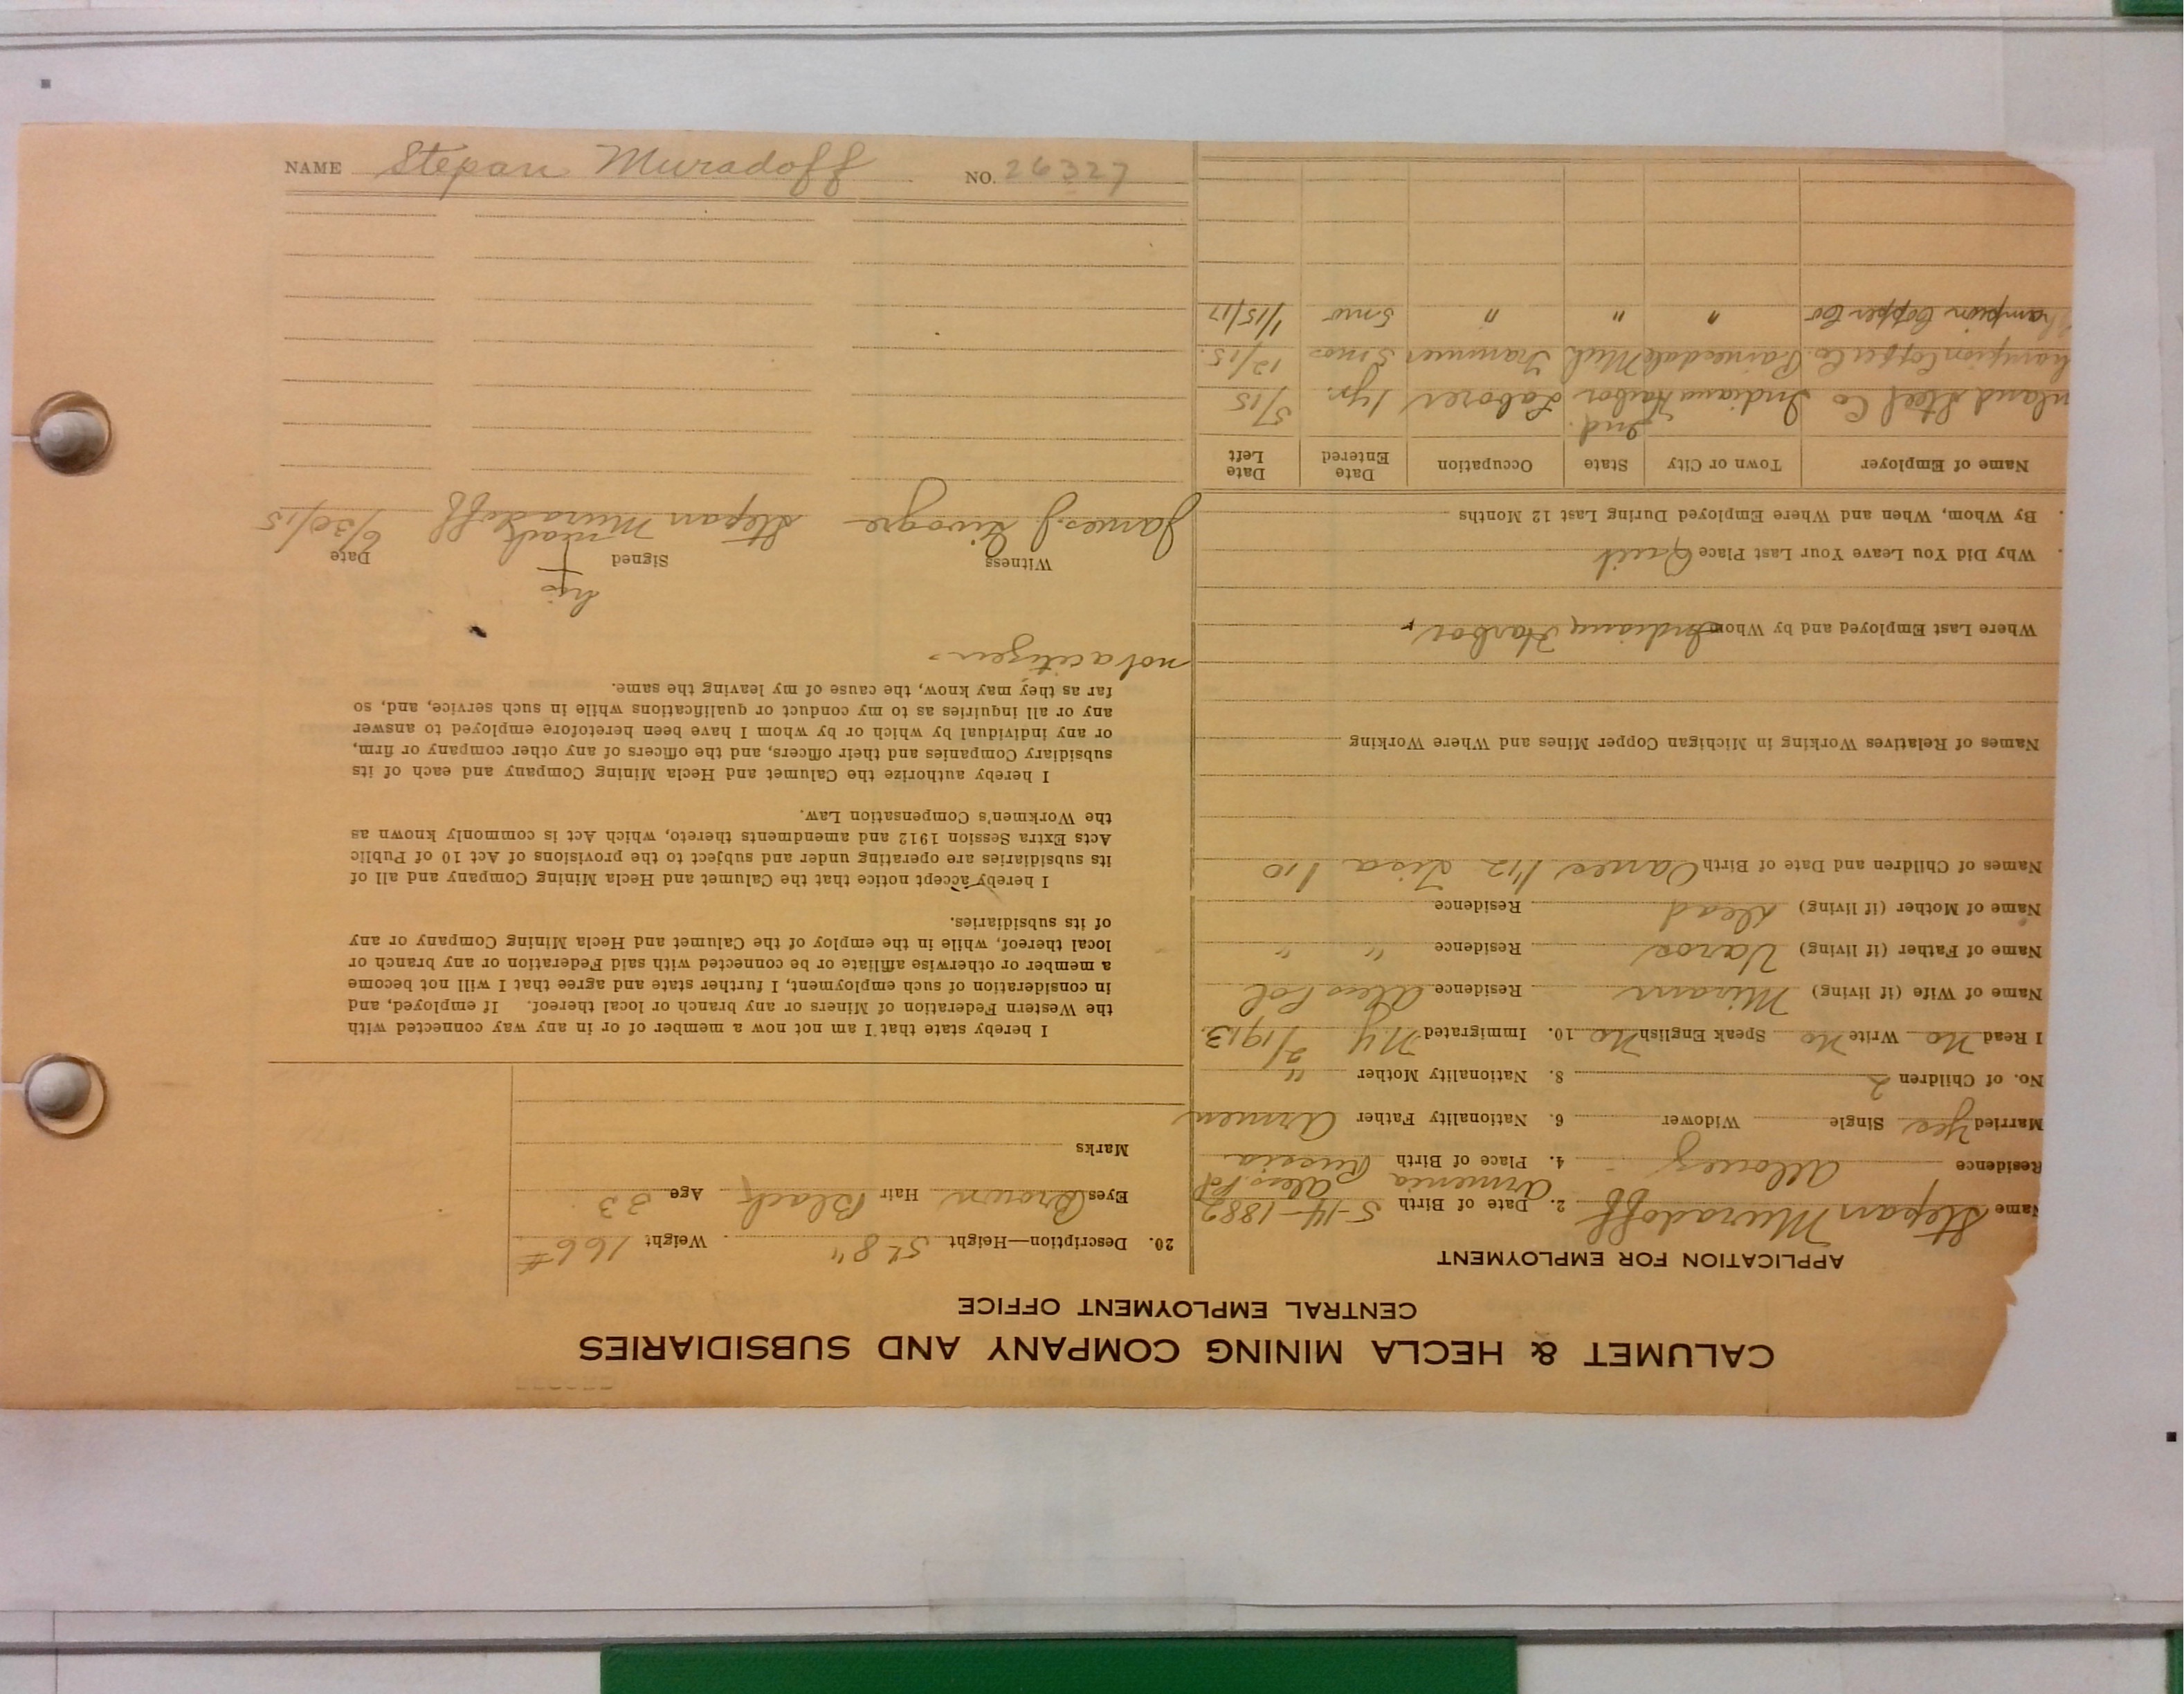 CALUMET & HECLA MINING COMPANY AND SUBSIDIARIES
CENTRAL EMPLOYMENT OFFICE
APPLICATION FOR EMPLOYMENT
Name Stepan Muradoff 2. Date of Birth 5-14-1882
Residence Allouez 4. Place of Birth Armenia Russia
Married Yes Single Widower 6. Nationality Father Armen
No. of Children 2 8. Nationality Mother "
I Read No Write No Speak English No 10. Immigrated N.Y. 2/1913
Name of Wife (if living) Mirann Residence
Name of Father (if living) Varos Residence " "
Name of Mother (if living) Dead Residence
Names of Children and Date of Birth
Names of Relatives Working in Michigan Copper Mines and Where Working
Where Last Employed and by Whom Indiana Harbor
Why Did You Leave Your Last Place Quit
By Whom, When and Where Employed During Last 12 Months
Name of Employer Town or City State Occupation Date Entered Date Left
nland Steel Co Indiana Harbor Ind. Laborer 1 yr. 5/15
hampion Copper Co. Painesdale Mich Trammer 5 mos 12/15.
hampion Copper Co " " " 5 mo 1/15/17
20. Description—Height 5' 8" Weight 166 #
Eyes Brown Hair Black Age 33
Marks
I hereby state that I am not now a member of or in any way connected with
the Western Federation of Miners or any branch or local thereof. If employed, and
in consideration of such employment, I further state and agree that I will not become
a member or otherwise affiliate or be connected with said Federation or any branch or
local thereof, while in the employ of the Calumet and Hecla Mining Company or any
of its subsidiaries.
I hereby accept notice that the Calumet and Hecla Mining Company and all of
its subsidiaries are operating under and subject to the provisions of Act 10 of Public
Acts Extra Session 1912 and amendments thereto, which Act is commonly known as
the Workmen's Compensation Law.
I hereby authorize the Calumet and Hecla Mining Company and each of its
subsidiary Companies and their officers, and the officers of any other company or firm,
or any individual by which or by whom I have been heretofore employed to answer
any or all inquiries as to my conduct or qualifications while in such service, and, so
far as they may know, the cause of my leaving the same.
not a citizen
his
Witness Signed mark Date
James J. Stepan Muradoff 6/30/15
NAME Stepan Muradoff NO. 26327